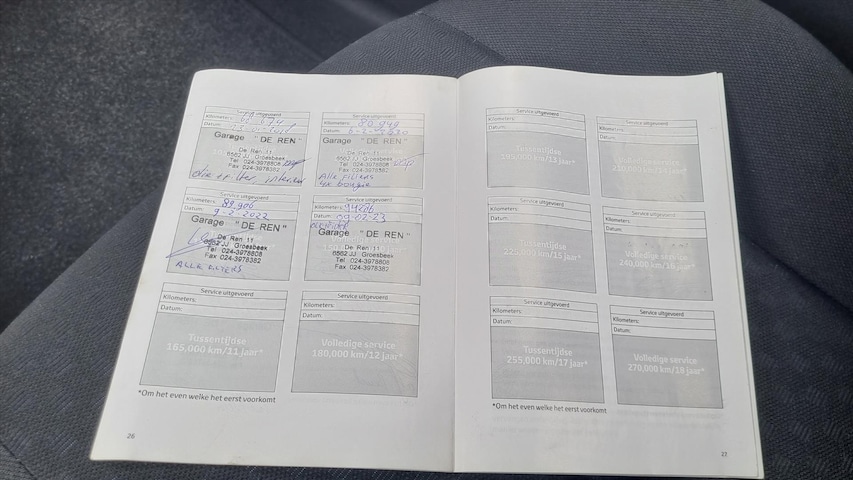 Service uitgevoerd
Kilometers:
Datum:
Garage "DE REN"
De Ren 11
6562 JJ Groesbeek
Tel 024-3978808
Fax 024-3978382
Service uitgevoerd
Kilometers: 80.949
Datum:
Garage "DE REN"
De Ren 11
6562 JJ Groesbeek
Tel 024-3978808
Fax 024-3978382
Alle Filters
4x bougie
Service uitgevoerd
Kilometers: 89.906
Datum: 9-2-2022
Garage "DE REN"
De Ren 11
6562 JJ Groesbeek
Tel 024-3978808
Fax 024-3978382
ALLE FILTERS
Service uitgevoerd
Kilometers: 94286
Datum: 09-02-23
Garage "DE REN"
De Ren 11
6562 JJ Groesbeek
Tel 024-3978808
Fax 024-3978382
Service uitgevoerd
Kilometers:
Datum:
Tussentijdse
165,000 km/11 jaar*
Service uitgevoerd
Kilometers:
Datum:
Volledige service
180,000 km/12 jaar*
*Om het even welke het eerst voorkomt
26
Service uitgevoerd
Kilometers:
Datum:
Tussentijdse
195,000 km/13 jaar*
Service uitgevoerd
Kilometers:
Datum:
Volledige service
210,000 km/14 jaar*
Service uitgevoerd
Kilometers:
Datum:
Tussentijdse
225,000 km/15 jaar*
Service uitgevoerd
Kilometers:
Datum:
Volledige service
240,000 km/16 jaar*
Service uitgevoerd
Kilometers:
Datum:
Tussentijdse
255,000 km/17 jaar*
Service uitgevoerd
Kilometers:
Datum:
Volledige service
270,000 km/18 jaar*
*Om het even welke het eerst voorkomt
27